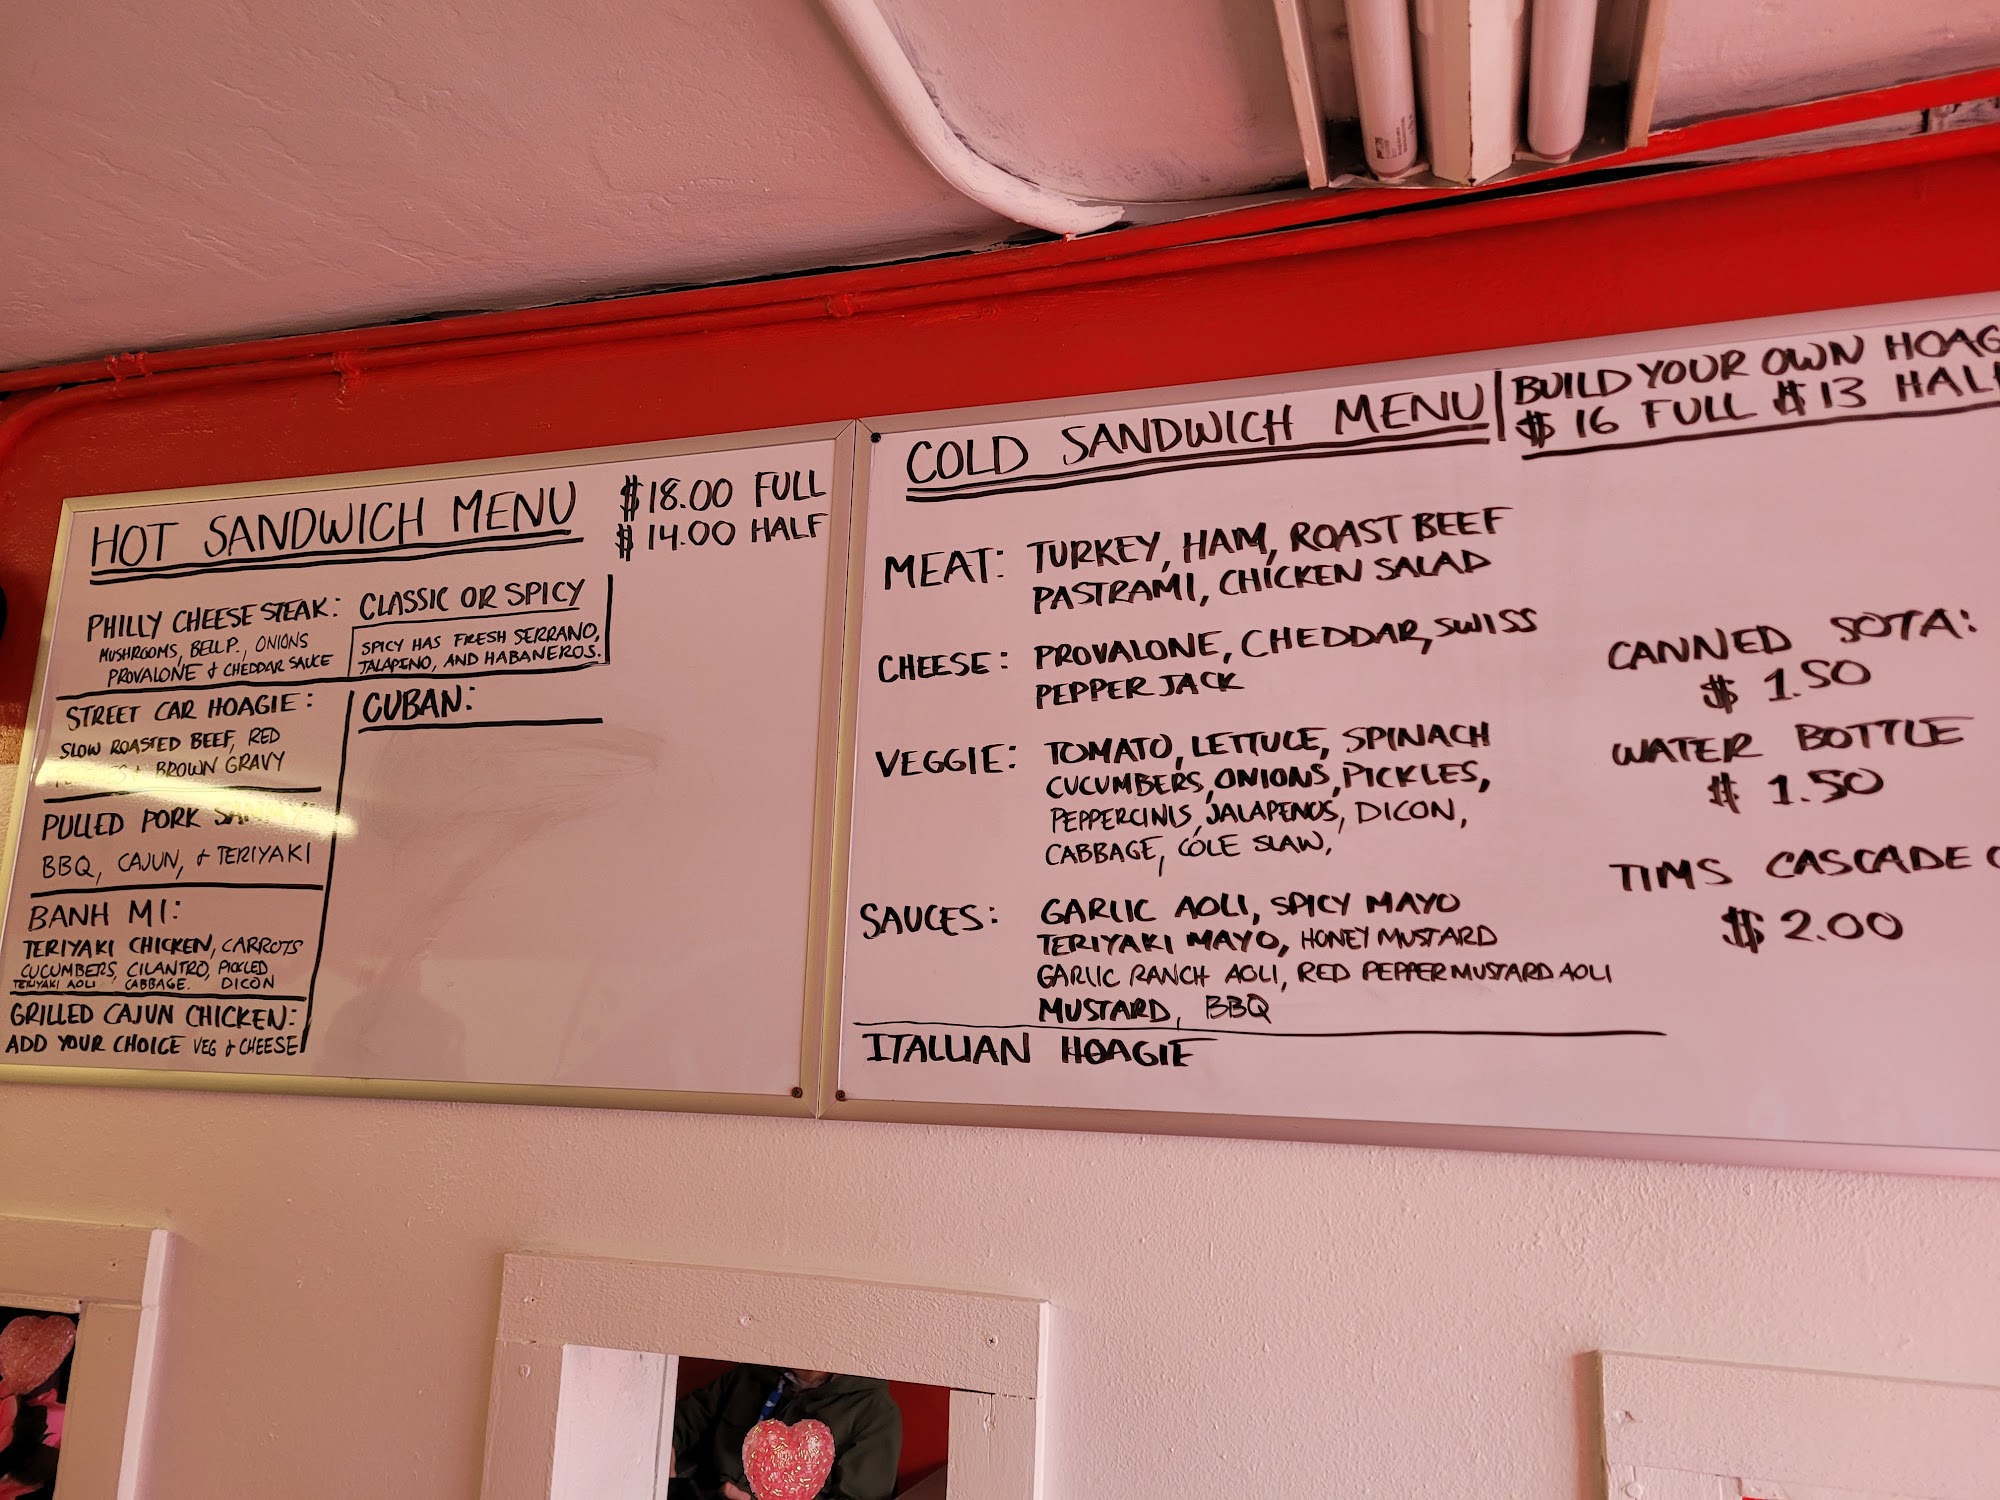 HOT SANDWICH MENU
$18.00 FULL
$14.00 HALF
PHILLY CHEESE STEAK:
MUSHROOMS, BELL P., ONIONS
PROVALONE & CHEDDAR SAUCE
CLASSIC OR SPICY
SPICY HAS FRESH SERRANO,
JALAPENO, AND HABANEROS.
STREET CAR HOAGIE:
SLOW ROASTED BEEF, RED
& BROWN GRAVY
CUBAN:
PULLED PORK
BBQ, CAJUN, & TERIYAKI
BANH MI:
TERIYAKI CHICKEN, CARROTS
CUCUMBERS, CILANTRO, PICKLED
TERIYAKI AOLI CABBAGE. DICON
GRILLED CAJUN CHICKEN:
ADD YOUR CHOICE VEG & CHEESE
COLD SANDWICH MENU
BUILD YOUR OWN HOAG
$16 FULL $13 HALF
MEAT: TURKEY, HAM, ROAST BEEF
PASTRAMI, CHICKEN SALAD
CHEESE: PROVALONE, CHEDDAR, SWISS
PEPPER JACK
VEGGIE: TOMATO, LETTUCE, SPINACH
CUCUMBERS, ONIONS, PICKLES,
PEPPERCINIS, JALAPENOS, DICON,
CABBAGE, COLE SLAW,
SAUCES: GARLIC AOLI, SPICY MAYO
TERIYAKI MAYO, HONEY MUSTARD
GARLIC RANCH AOLI, RED PEPPER MUSTARD AOLI
MUSTARD, BBQ
ITALLIAN HOAGIE
CANNED SOTA:
$1.50
WATER BOTTLE
$1.50
TIMS CASCADE
$2.00